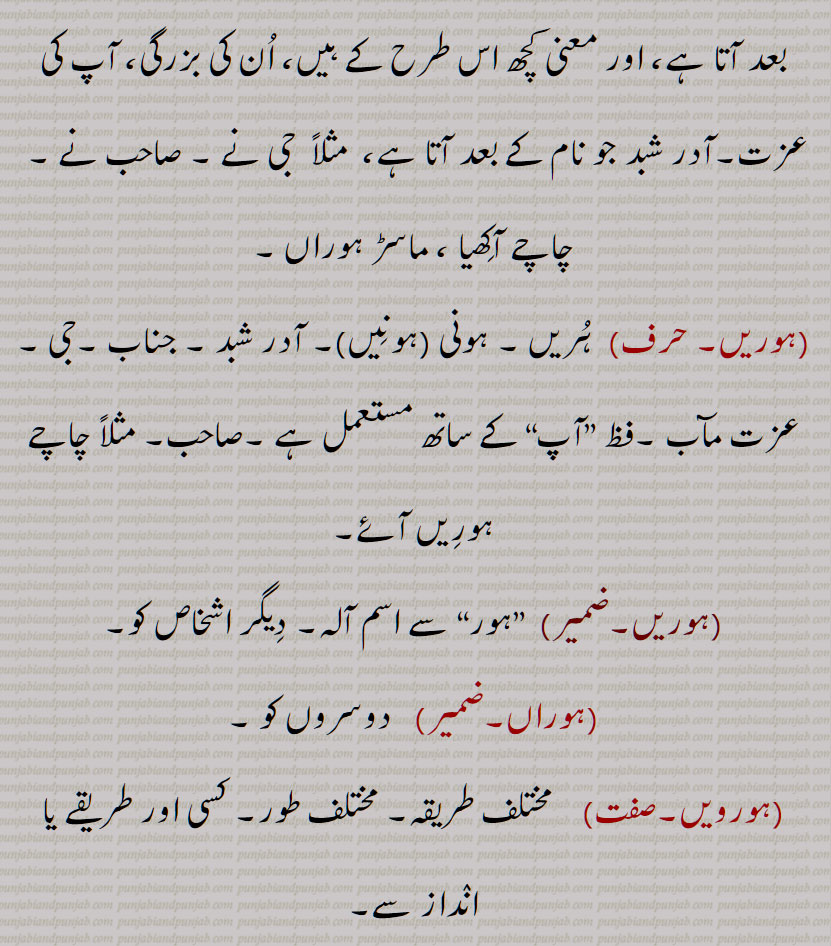 بعد آتا ہے، اور معنی کچھ اس طرح کے ہیں، اُن کی بزرگی، آپ کی
عزت۔آدر شبد جو نام کے بعد آتا ہے، مثلاً جی نے ۔ صاحب نے ۔
چاچے آکِھیا ، ماسڑ ہوراں ۔
(ہوریں۔ حرف) ہُریں ۔ ہونی (ہونِیں)۔ آدر شبد ۔ جناب ۔جی ۔
عزت مآب ۔فظ ”آپ“ کے ساتھ مستعمل ہے ۔صاحب۔ مثلاً چاچے
ہورِیں آئے۔
(ہوریں۔ضمیر) ”ہور“ سے اسم آلہ۔ دِیگر اشخاص کو۔
(ہوراں۔ضمیر) دوسروں کو ۔
(ہورویں۔صفت) مختلف طریقہ۔ مختلف طور۔ کسی اور طریقے یا
انٛداز سے۔